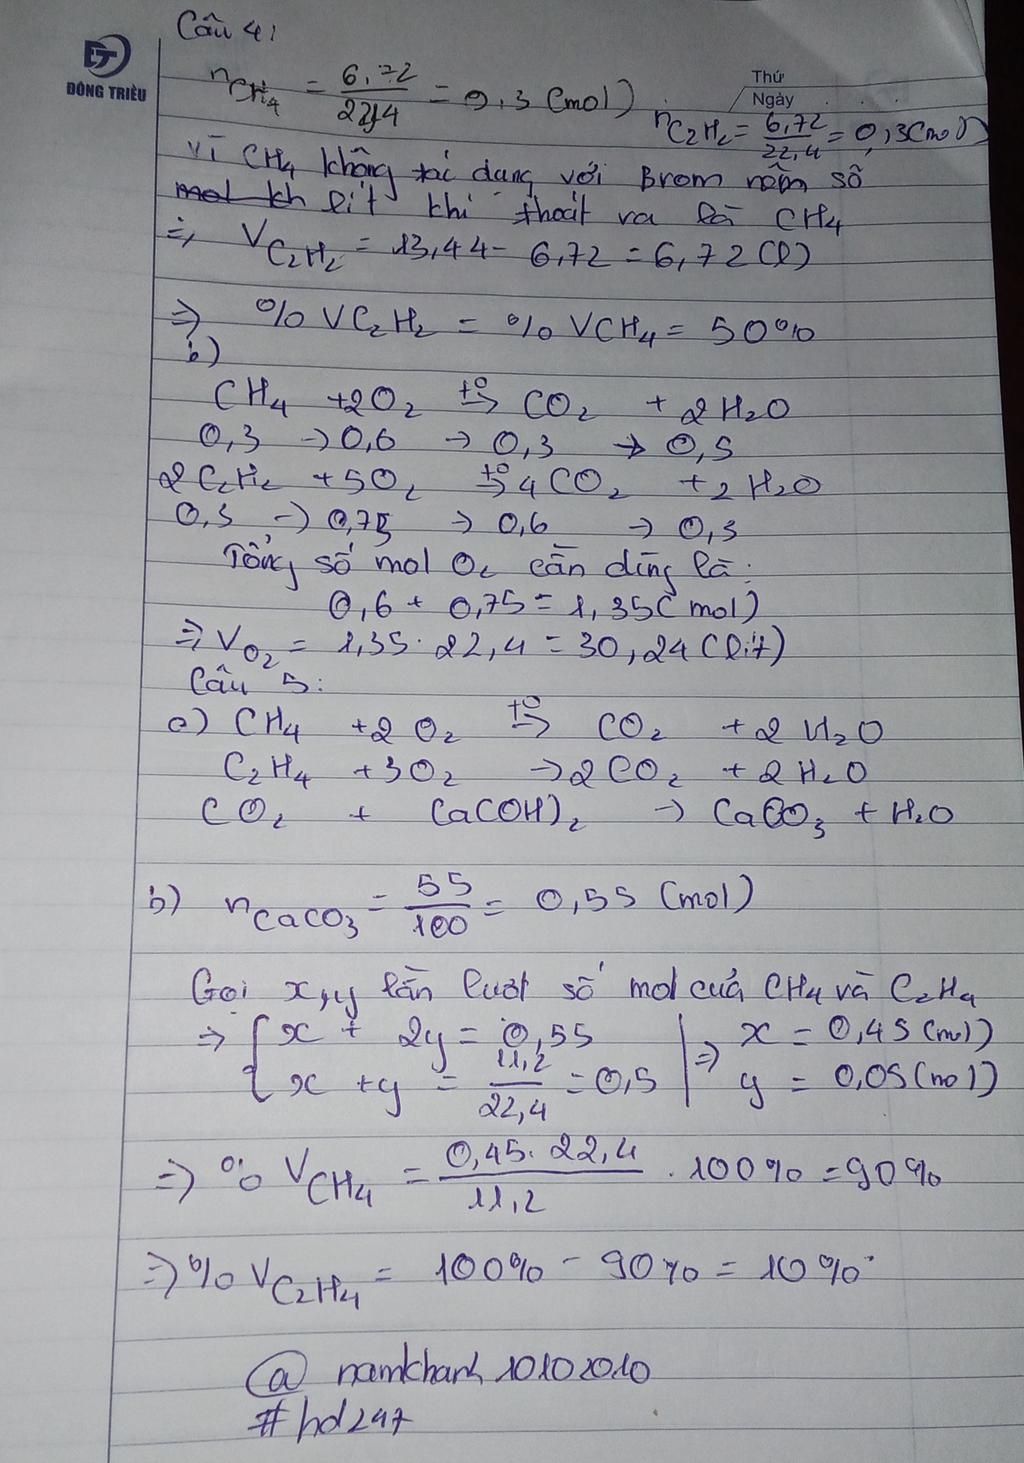 Câu 4:
ĐT
ĐÔNG TRIỀU
Thứ
Ngày
nCH4 = 6,72/22,4 = 0,3 (mol)
nC2H2 = 6,72/22,4 = 0,3 (mol)
Vì CH4 không tác dụng với Brom nên số
mol kh lít khí thoát ra là CH4
=> VC2H2 = 13,44 - 6,72 = 6,72 (l)
=> % VC2H2 = % VCH4 = 50%
b)
CH4 + 2O2 t°→ CO2 + 2H2O
0,3 → 0,6 → 0,3 → 0,5
2C2H2 + 5O2 t°→ 4CO2 + 2H2O
0,3 → 0,75 → 0,6 → 0,3
Tổng số mol O2 cần dùng là:
0,6 + 0,75 = 1,35 (mol)
=> VO2 = 1,35 . 22,4 = 30,24 (lít)
Câu 5:
a) CH4 + 2O2 t°→ CO2 + 2H2O
C2H4 + 3O2 → 2CO2 + 2H2O
CO2 + Ca(OH)2 → CaCO3 + H2O
b) nCaCO3 = 55/100 = 0,55 (mol)
Gọi x,y lần lượt số mol của CH4 và C2H4
=> { x + 2y = 0,55 | => x = 0,45 (mol)
x + y = 11,2/22,4 = 0,5 | y = 0,05 (mol)
=> % VCH4 = 0,45 . 22,4/11,2 . 100% = 90%
=> % VC2H4 = 100% - 90% = 10%
@ namkhanh10102010
#hd247